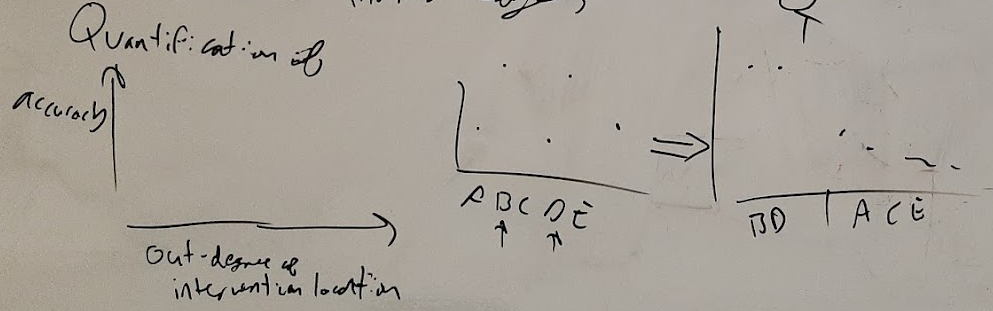 Quantification of
accuracy
out-degree of
intervention location
A B C D E
BD | A C E